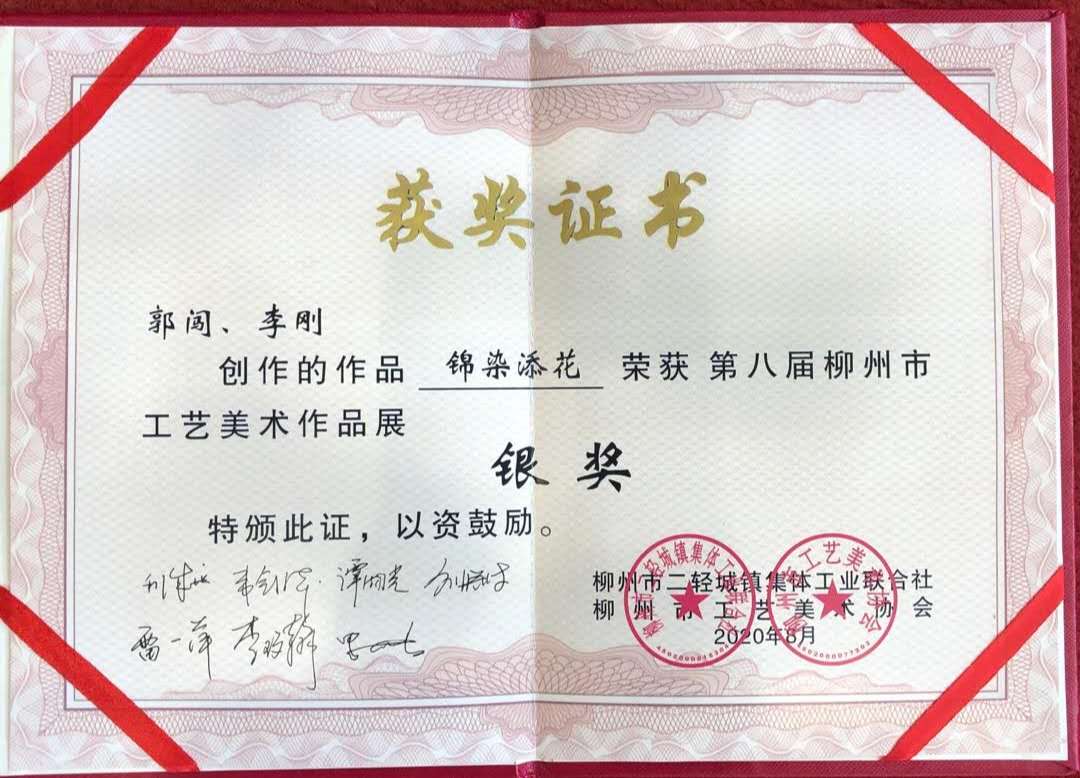 获奖证书
郭闯、李刚
创作的作品 锦染添花 荣获 第八届柳州市
工艺美术作品展
银奖
特颁此证，以资鼓励。
柳州市二轻城镇集体工业联合社
柳州市工艺美术协会
2020年8月
雷一萍